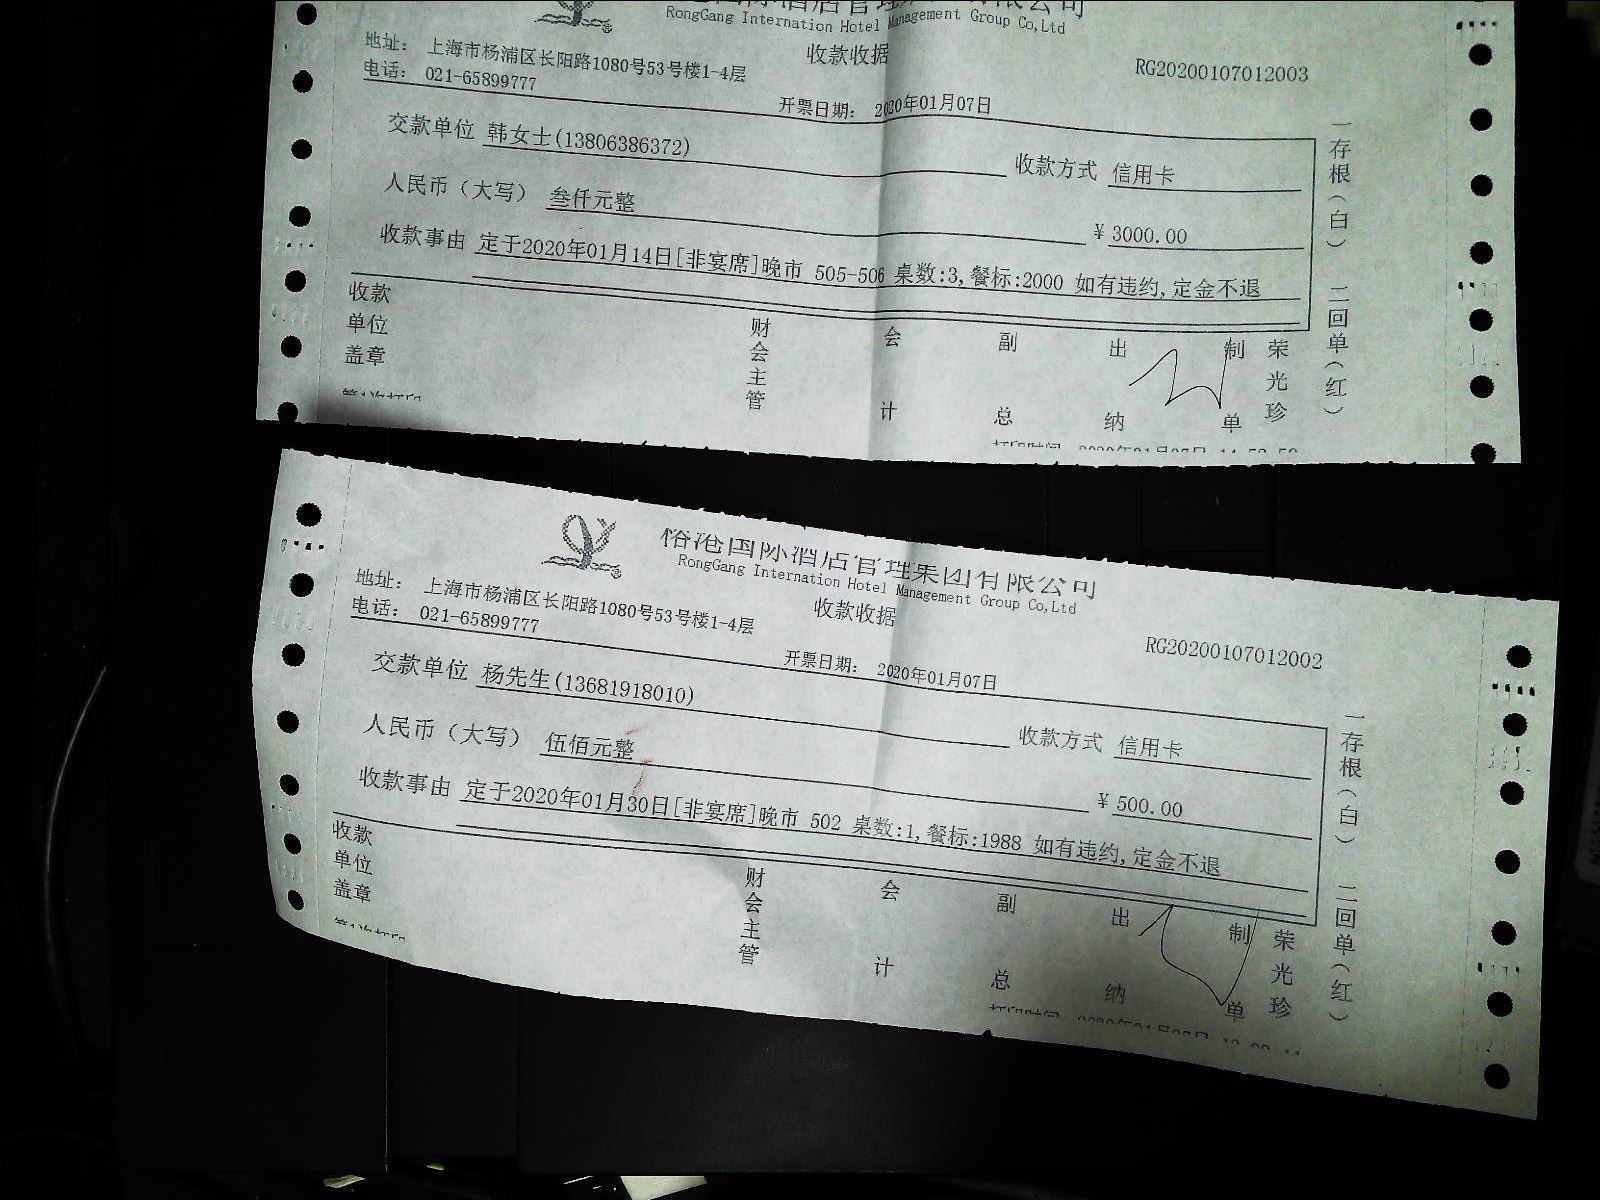 国际酒店管理集团有限公司
RongGang Internation Hotel Management Group Co,Ltd
收款收据
地址： 上海市杨浦区长阳路1080号53号楼1-4层
RG20200107012003
电话： 021-65899777
开票日期： 2020年01月07日
交款单位 韩女士(13806386372)
收款方式 信用卡
人民币（大写） 叁仟元整
￥3000.00
收款事由 定于2020年01月14日[非宴席]晚市 505-506 桌数:3,餐标:2000 如有违约,定金不退
收款单位盖章
财会主管
会计
副总
出纳
制单
荣光珍
一存根（白） 二回单（红）
第1次打印
打印时间
榕港国际酒店管理集团有限公司
RongGang Internation Hotel Management Group Co,Ltd
收款收据
地址： 上海市杨浦区长阳路1080号53号楼1-4层
RG20200107012002
电话： 021-65899777
开票日期： 2020年01月07日
交款单位 杨先生(13681918010)
收款方式 信用卡
人民币（大写） 伍佰元整
￥500.00
收款事由 定于2020年01月30日[非宴席]晚市 502 桌数:1,餐标:1988 如有违约,定金不退
收款单位盖章
财会主管
会计
副总
出纳
制单
荣光珍
一存根（白） 二回单（红）
第1次打印
打印时间